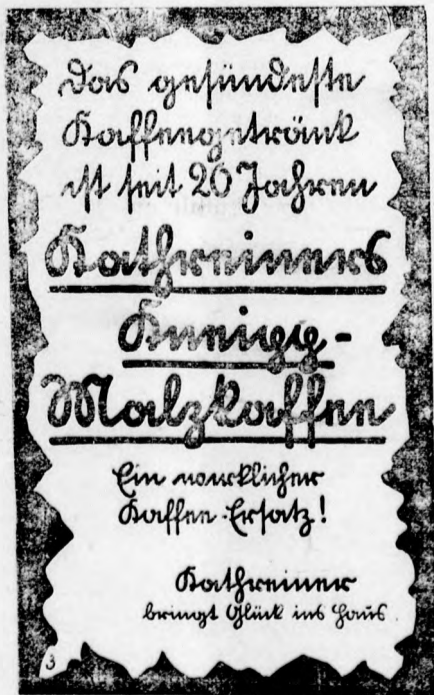 Das gesündeste
Kaffeegetränk
ist seit 20 Jahren
Kathreiners
Kneipp-
Malzkaffee
Ein wirklicher
Kaffee-Ersatz!
Kathreiner
bringt Glück ins Haus.
3